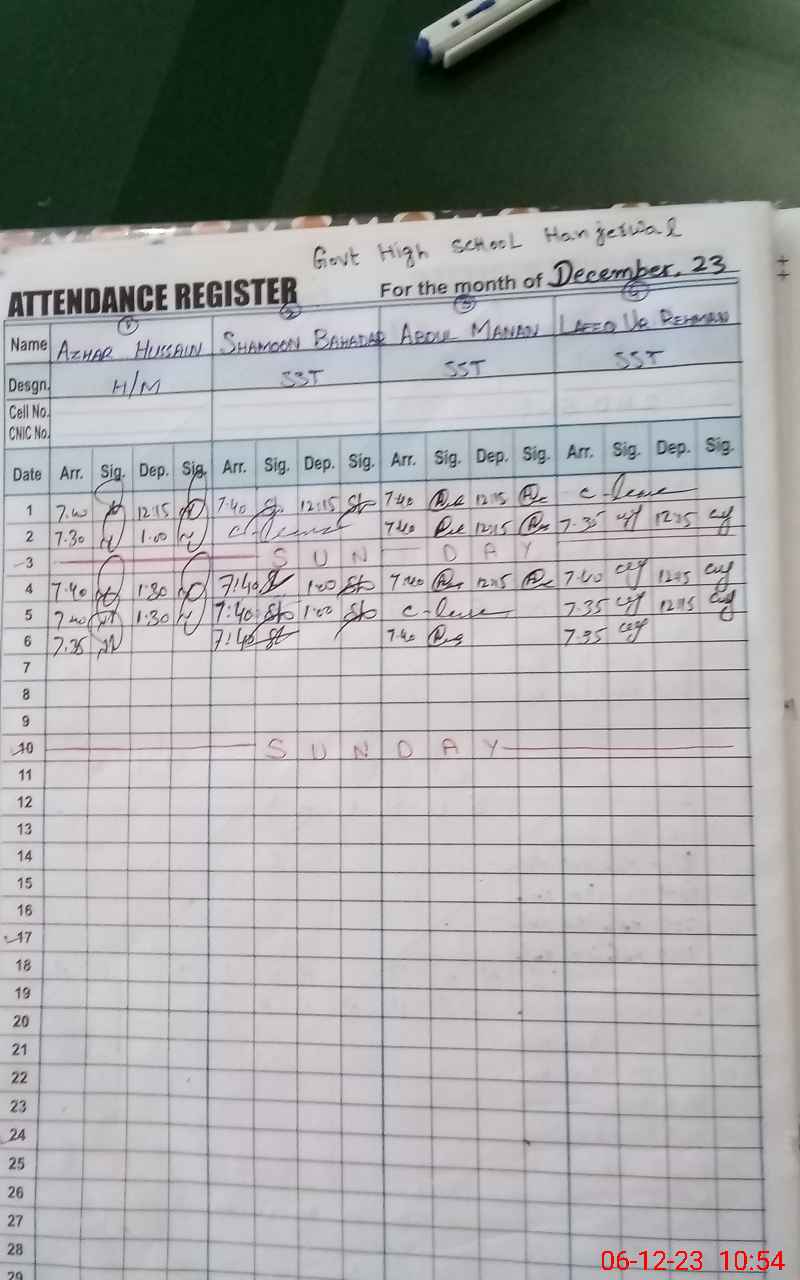 Govt High School Hanjerwal
ATTENDANCE REGISTER For the month of December. 23
1 2 3 4
Name AZHAR HUSSAIN SHAMOON BAHADAR ABDUL MANAN LAEEQ UR REHMAN
Desgn. H/M SST SST SST
Cell No.
CNIC No.
Date Arr. Sig. Dep. Sig. Arr. Sig. Dep. Sig. Arr. Sig. Dep. Sig. Arr. Sig. Dep. Sig.
1 7.40 12:15 7.40 12:15 7:40 12:15 C-leave
2 7.30 1.00 C-leave 7:40 12:15 7.35 12:15
3 SUNDAY
4 7.40 1.30 7:40 1:00 7:40 12:15 7.40 12:15
5 7.40 1:30 7:40 1:00 C-leave 7.35 12:15
6 7.35 7:40 7.40 7.35
7
8
9
10 SUNDAY
11
12
13
14
15
16
17
18
19
20
21
22
23
24
25
26
27
28
29
06-12-23 10:54